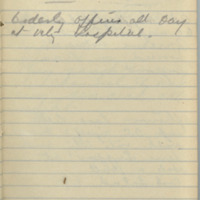 Orderly officer all day
at Hospital.